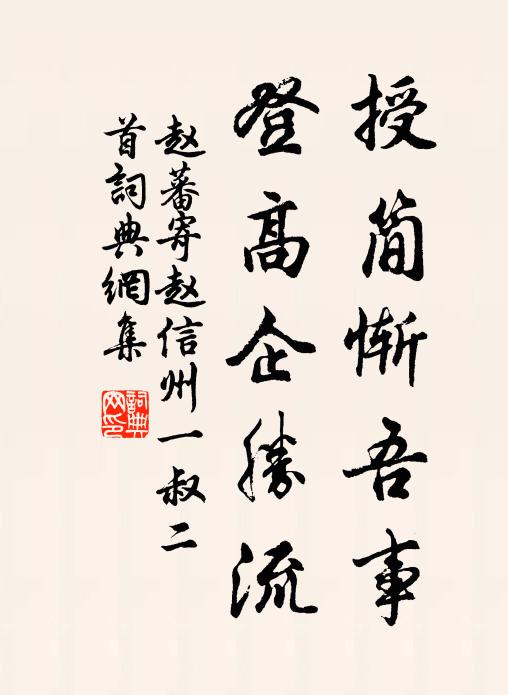 授简惭吾事
登高企勝流
赵蕃寄赵信州一叔二
首詞典網集
詞典网印